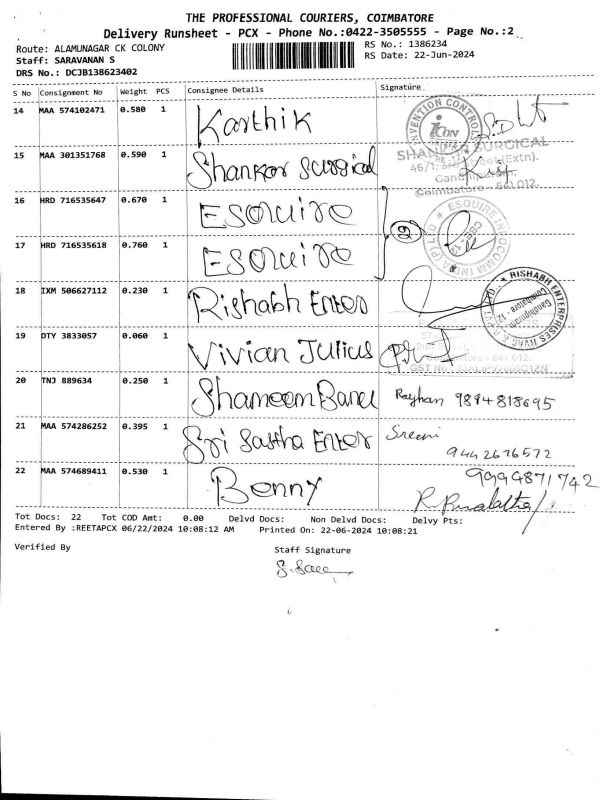 THE PROFESSIONAL COURIERS, COIMBATORE
Delivery Runsheet - PCX - Phone No.:0422-3505555 - Page No.:2
Route: ALAMUNAGAR CK COLONY
RS No.: 1386234
Staff: SARAVANAN S
RS Date: 22-Jun-2024
DRS No.: DCJB138623402
S No Consignment No Weight PCS Consignee Details Signature
14 MAA 574102471 0.580 1 Karthik
INVENTION CONTROL
iCON
15 MAA 301351768 0.590 1 Shankar Surgical
SHANKAR SURGICAL
Coimbatore - 641 012.
16 HRD 716535647 0.670 1 Esquire
17 HRD 716535618 0.760 1 Esquire
18 IXM 506627112 0.230 1 Rishabh Enter
RISHABH ENTERPRISES
Gandhipuram
Coimbatore - 12.
19 OTY 3833057 0.060 1 Vivian Julius
20 TNJ 889634 0.250 1 Shameem Banu Rayhan 9894818695
21 MAA 574286252 0.395 1 Sri Sastha Enter Sreeni
9442676572
22 MAA 574689411 0.530 1 Benny 9994871742
Tot Docs: 22 Tot COD Amt: 0.00 Delvd Docs: Non Delvd Docs: Delvy Pts:
Entered By :REETAPCX 06/22/2024 10:08:12 AM Printed On: 22-06-2024 10:08:21
Verified By Staff Signature